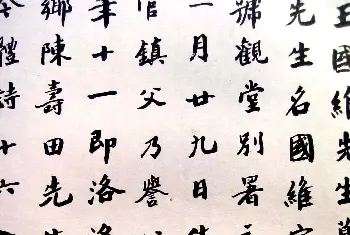 王國維先生
先生名國維字
號觀堂別署
一月廿九日
官鎮父乃譽
年十一即洛
鄉陳壽田先
體詩十六